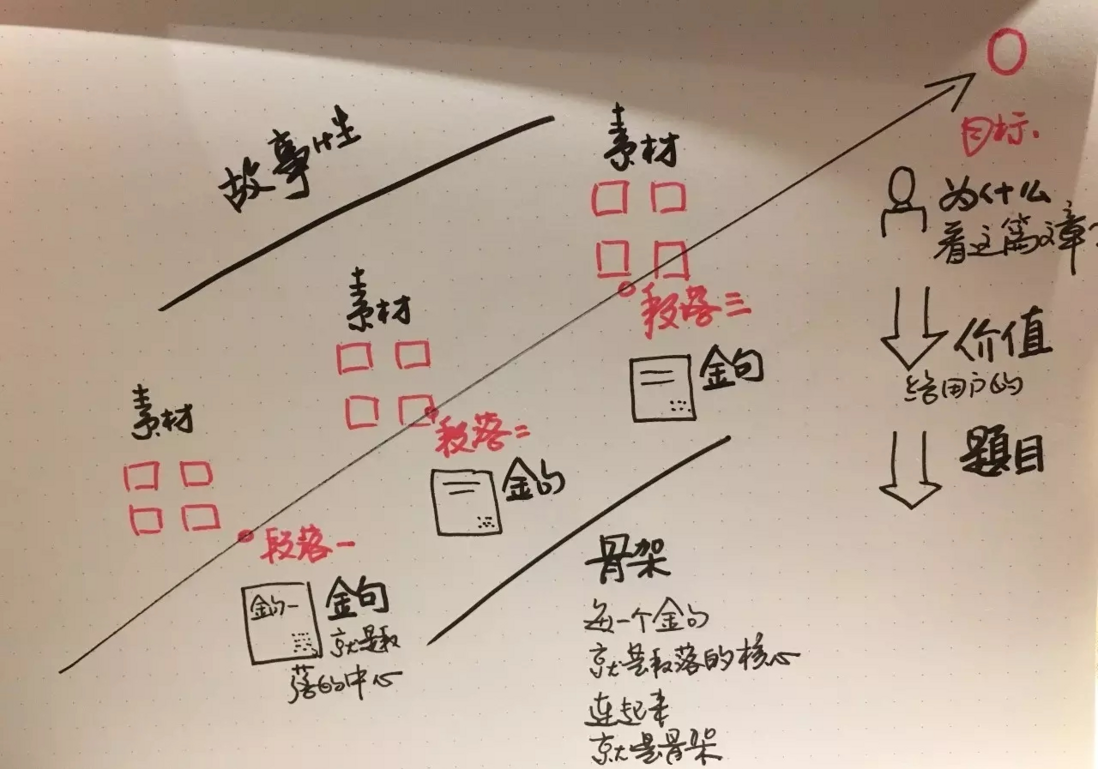 故事性
素材
目标.
为什么
看这篇文章?
素材
段落三
金句
价值
给用户的
素材
段落二
金句
题目
段落一
金句一
金句
就是段
落的中心
骨架
每一个金句
就是段落的核心
连起来
就是骨架